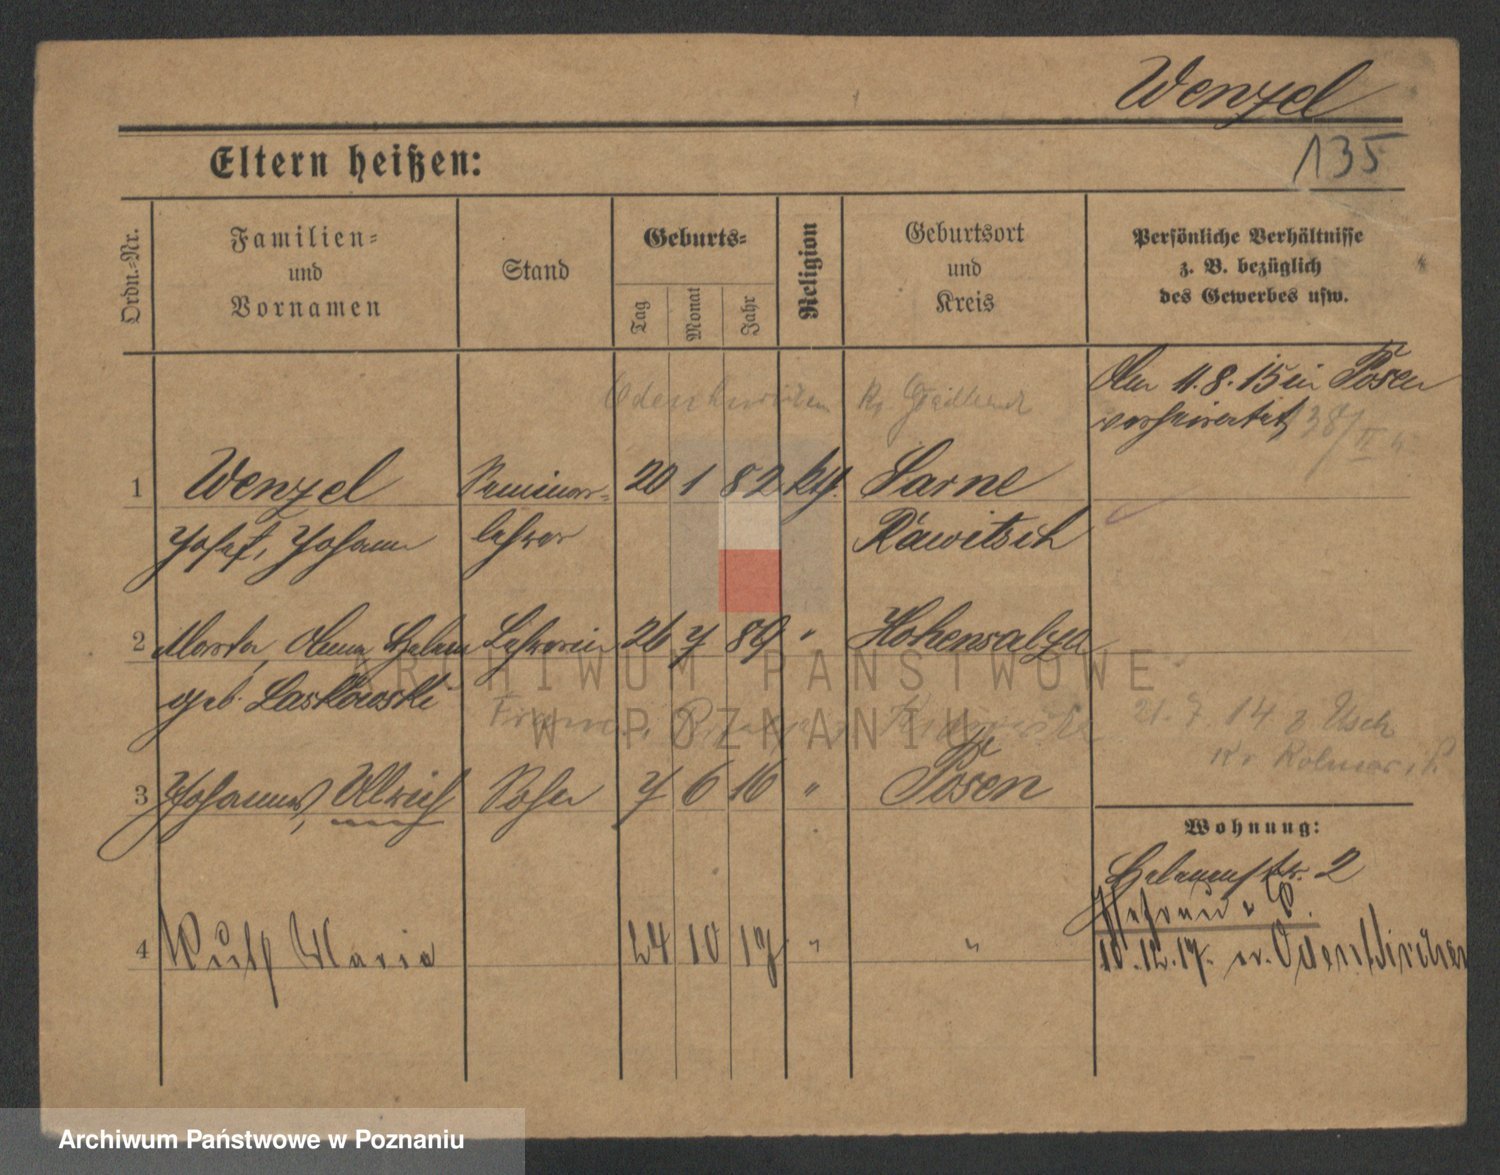 Wenzel
135
Eltern heißen:
Ordn.-Nr.
Familien-
und
Vornamen
Stand
Geburts-
Tag
Monat
Jahr
Religion
Geburtsort
und
Kreis
Persönliche Verhältnisse
z. B. bezüglich
des Gewerbes usw.
Am 11.8.15 in Posen
verheiratet
Odenkirchen Kr.
1 Wenzel Seminar- 20 1 82 kth. Sarne
Josef, Johann lehrer Rawitsch
2 Marta, Anna Helene Lehrerin 26 7 89 " Hohensalza
geb. Laskowski
21.7.14 z Usch
Kr Kolmar i. P.
3 Johannes, Ulrich Sohn 7 6 16 " Posen
Wohnung:
Helenenstr. 2
4 Ruth Maria 24 10 17 " "
10.12.17. n. Odenkirchen
ARCHIWUM PAŃSTWOWE
W POZNANIU
Archiwum Państwowe w Poznaniu